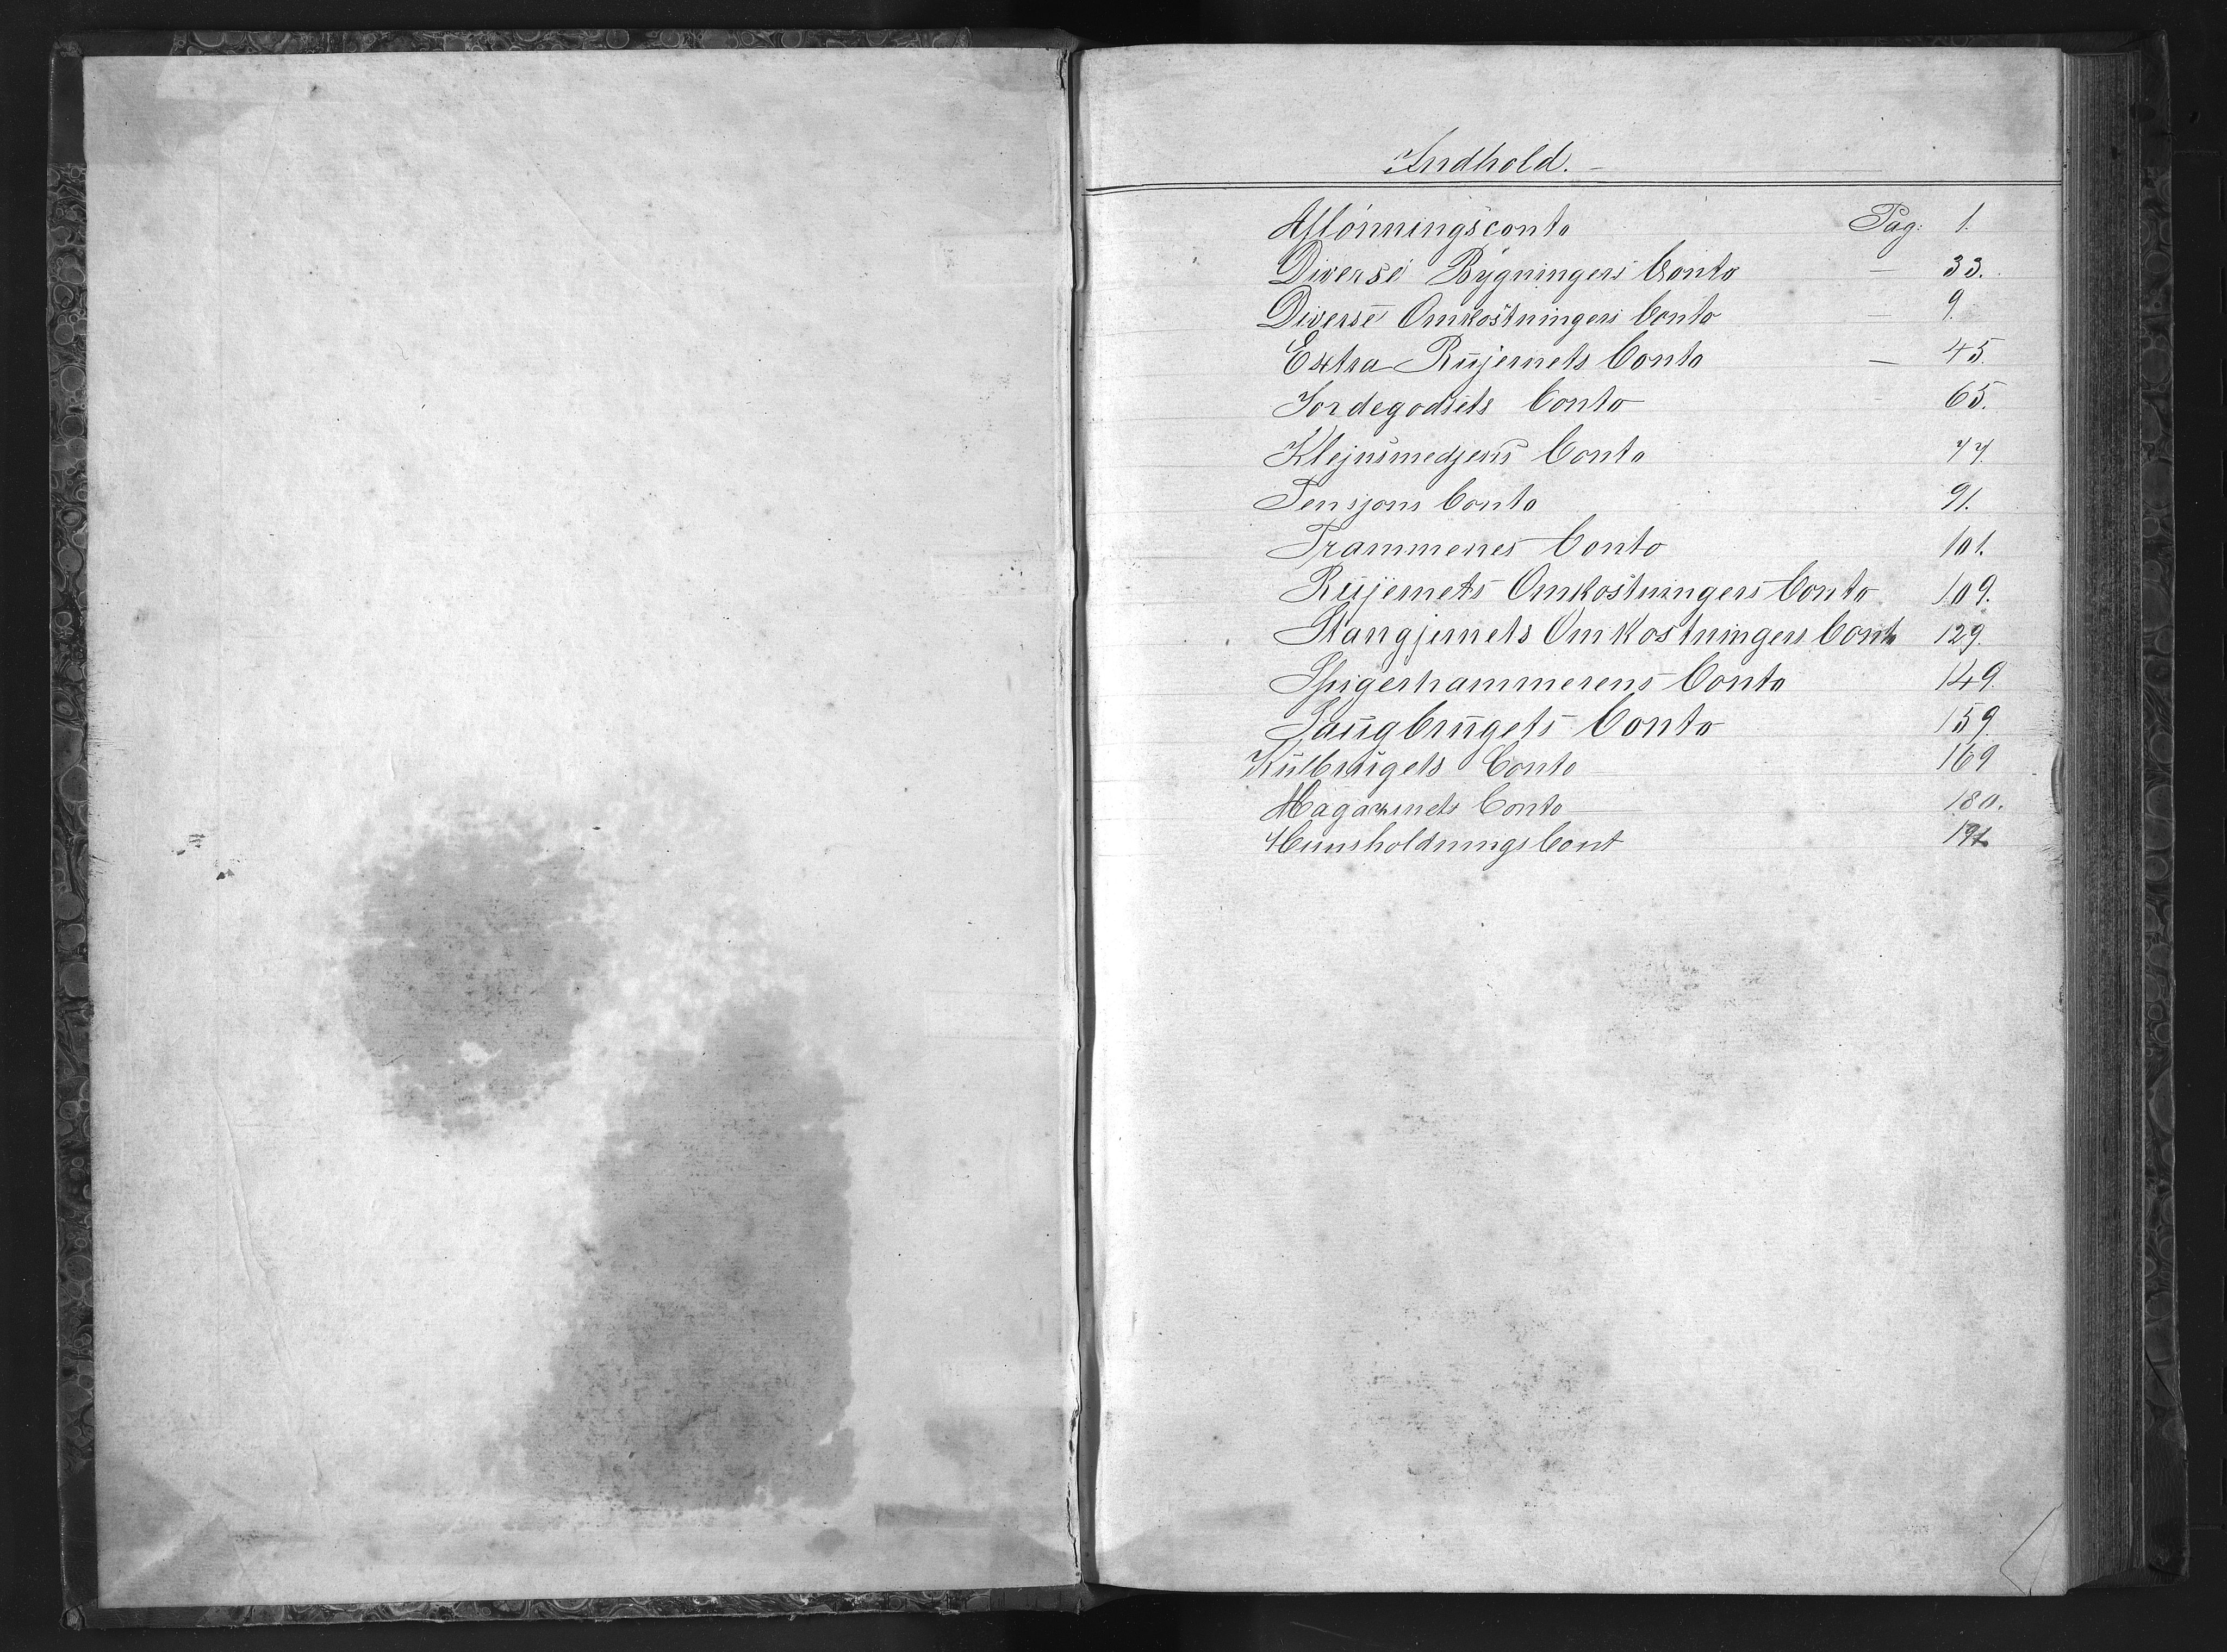 Indhold.
Aflönningsconto Pag: 1.
Diverse Bygningers Conto — 33.
Diverse Omkostningers Conto — 9.
Extra Rujernets Conto — 45.
Jordegodsets Conto 65.
Klejnsmedjens Conto 77.
Pensjons Conto 91.
Prammenes Conto 101.
Rujernets Omkostningers Conto 109.
Stangjernets Omkostningers Conto 129.
Spigerhammerens Conto 149.
Saugbrugets Conto 159.
Kulbrugets Conto 169
Magazinets Conto 180.
Huusholdnings Cont